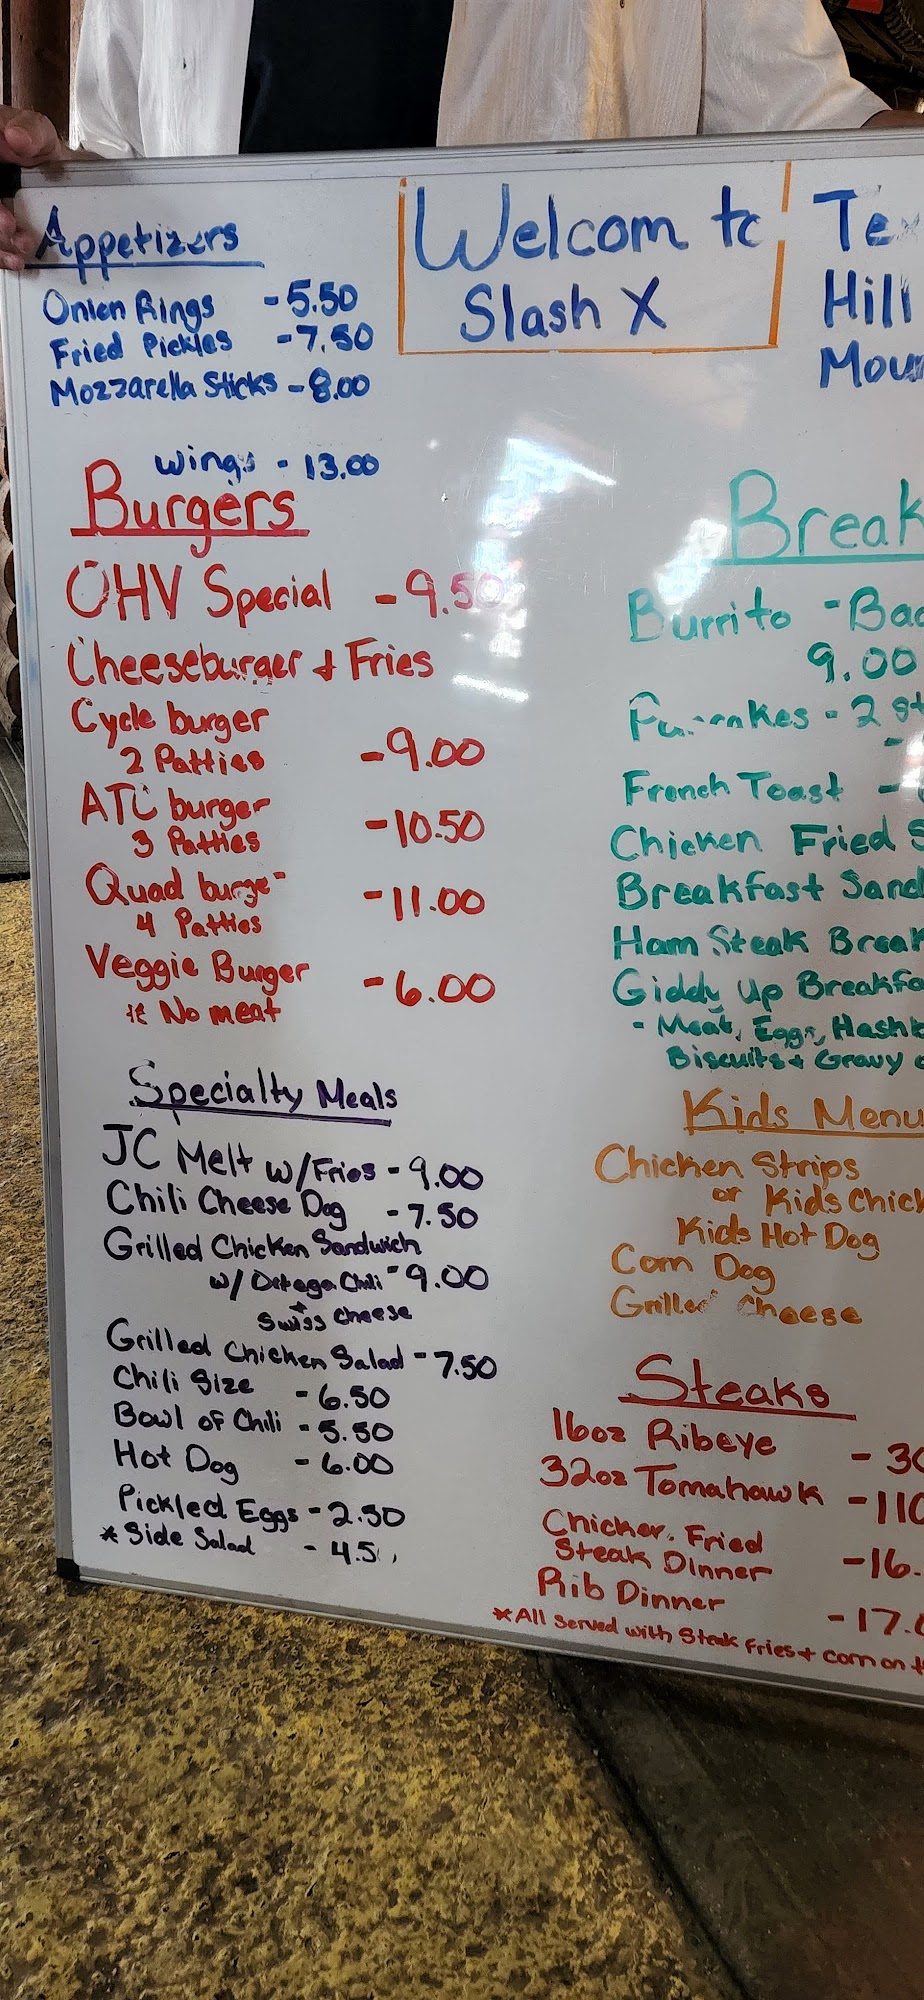 Appetizers
Onion Rings -5.50
Fried Pickles -7.50
Mozzarella Sticks -8.00
wings - 13.00
Welcom to
Slash X
Hill
Burgers
OHV Special -9.50
Cheeseburger + Fries
Cycle burger
2 Patties -9.00
ATC burger
3 Patties -10.50
Quad burger
4 Patties -11.00
Veggie Burger
* No meat -6.00
Specialty Meals
JC Melt w/Fries -9.00
Chili Cheese Dog -7.50
Grilled Chicken Sandwich
w/ Ortega Chili -9.00
+
Swiss Cheese
Grilled Chicken Salad -7.50
Chili Size -6.50
Bowl of Chili -5.50
Hot Dog -6.00
Pickled Eggs -2.50
* Side Salad - 4.5
Break
Burrito - Bac
9.00
Pancakes - 2
French Toast -
Chicken Fried S
Breakfast Sand
Ham Steak Break
Giddy Up Breakfa
- Meat, Eggs, Hashb
Biscuits + Gravy
Kids Menu
Chicken Strips
or Kids Chick
Kids Hot Dog
Corn Dog
Grilled Cheese
Steaks
16oz Ribeye - 30
32oz Tomahawk -110
Chicken Fried
Steak Dinner -16.
Rib Dinner -17.0
*All served with Steak Fries + corn on